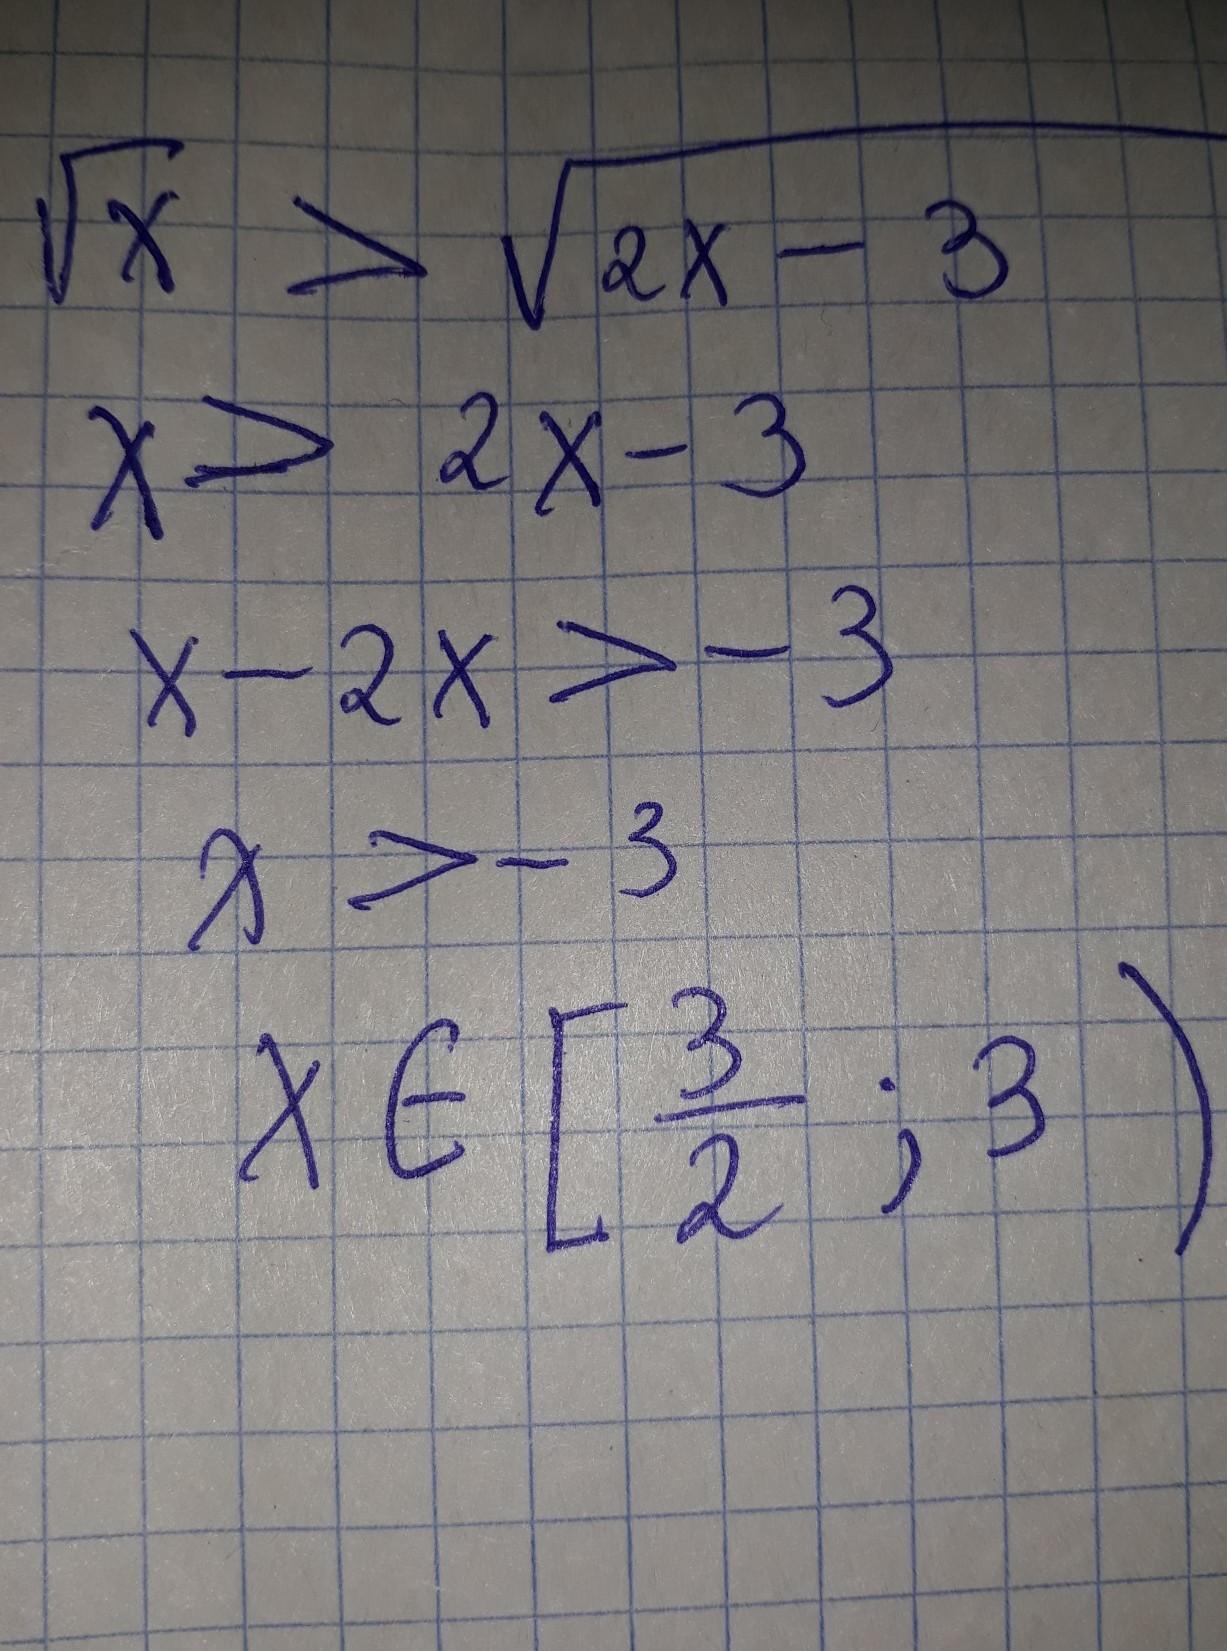 √x > √(2x - 3)
x > 2x - 3
x - 2x > - 3
x > - 3
x ∈ [3/2 ; 3)